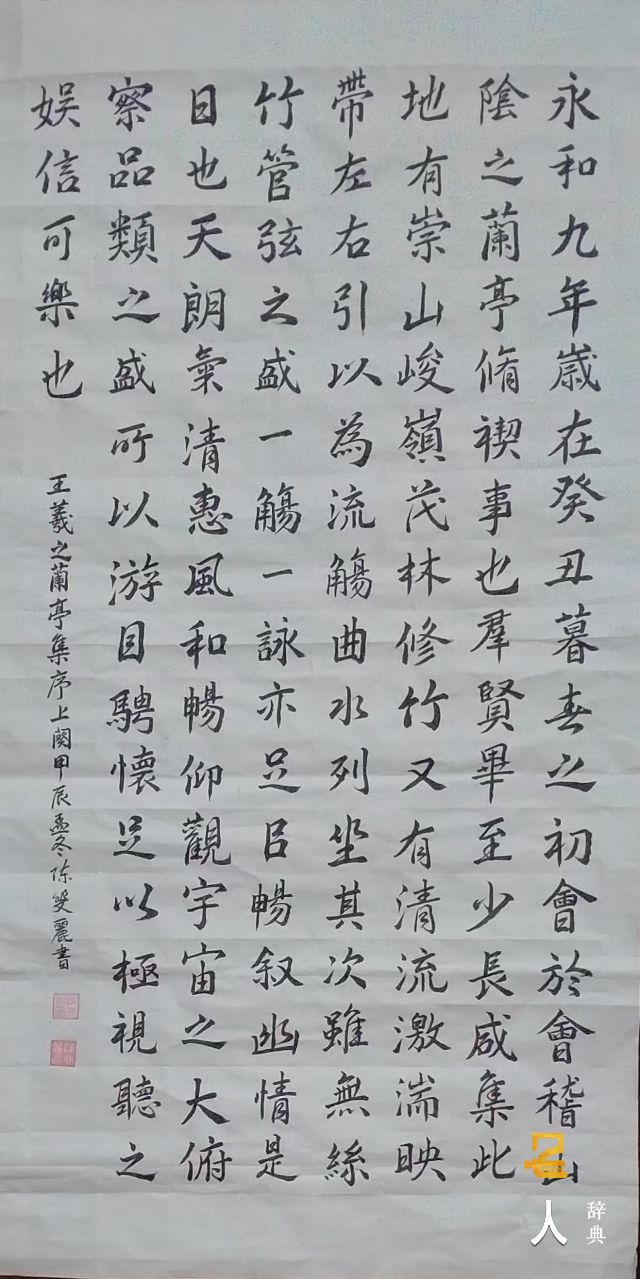 永和九年歲在癸丑暮春之初會於會稽山
陰之蘭亭脩禊事也羣賢畢至少長咸集此
地有崇山峻嶺茂林修竹又有清流激湍映
帶左右引以為流觴曲水列坐其次雖無絲
竹管弦之盛一觴一詠亦足㠯暢叙幽情是
日也天朗氣清惠風和暢仰觀宇宙之大俯
察品類之盛所以游目騁懷足以極視聽之
娛信可樂也
王羲之蘭亭集序上闋甲辰孟冬陈雙麗書
名人
辞典